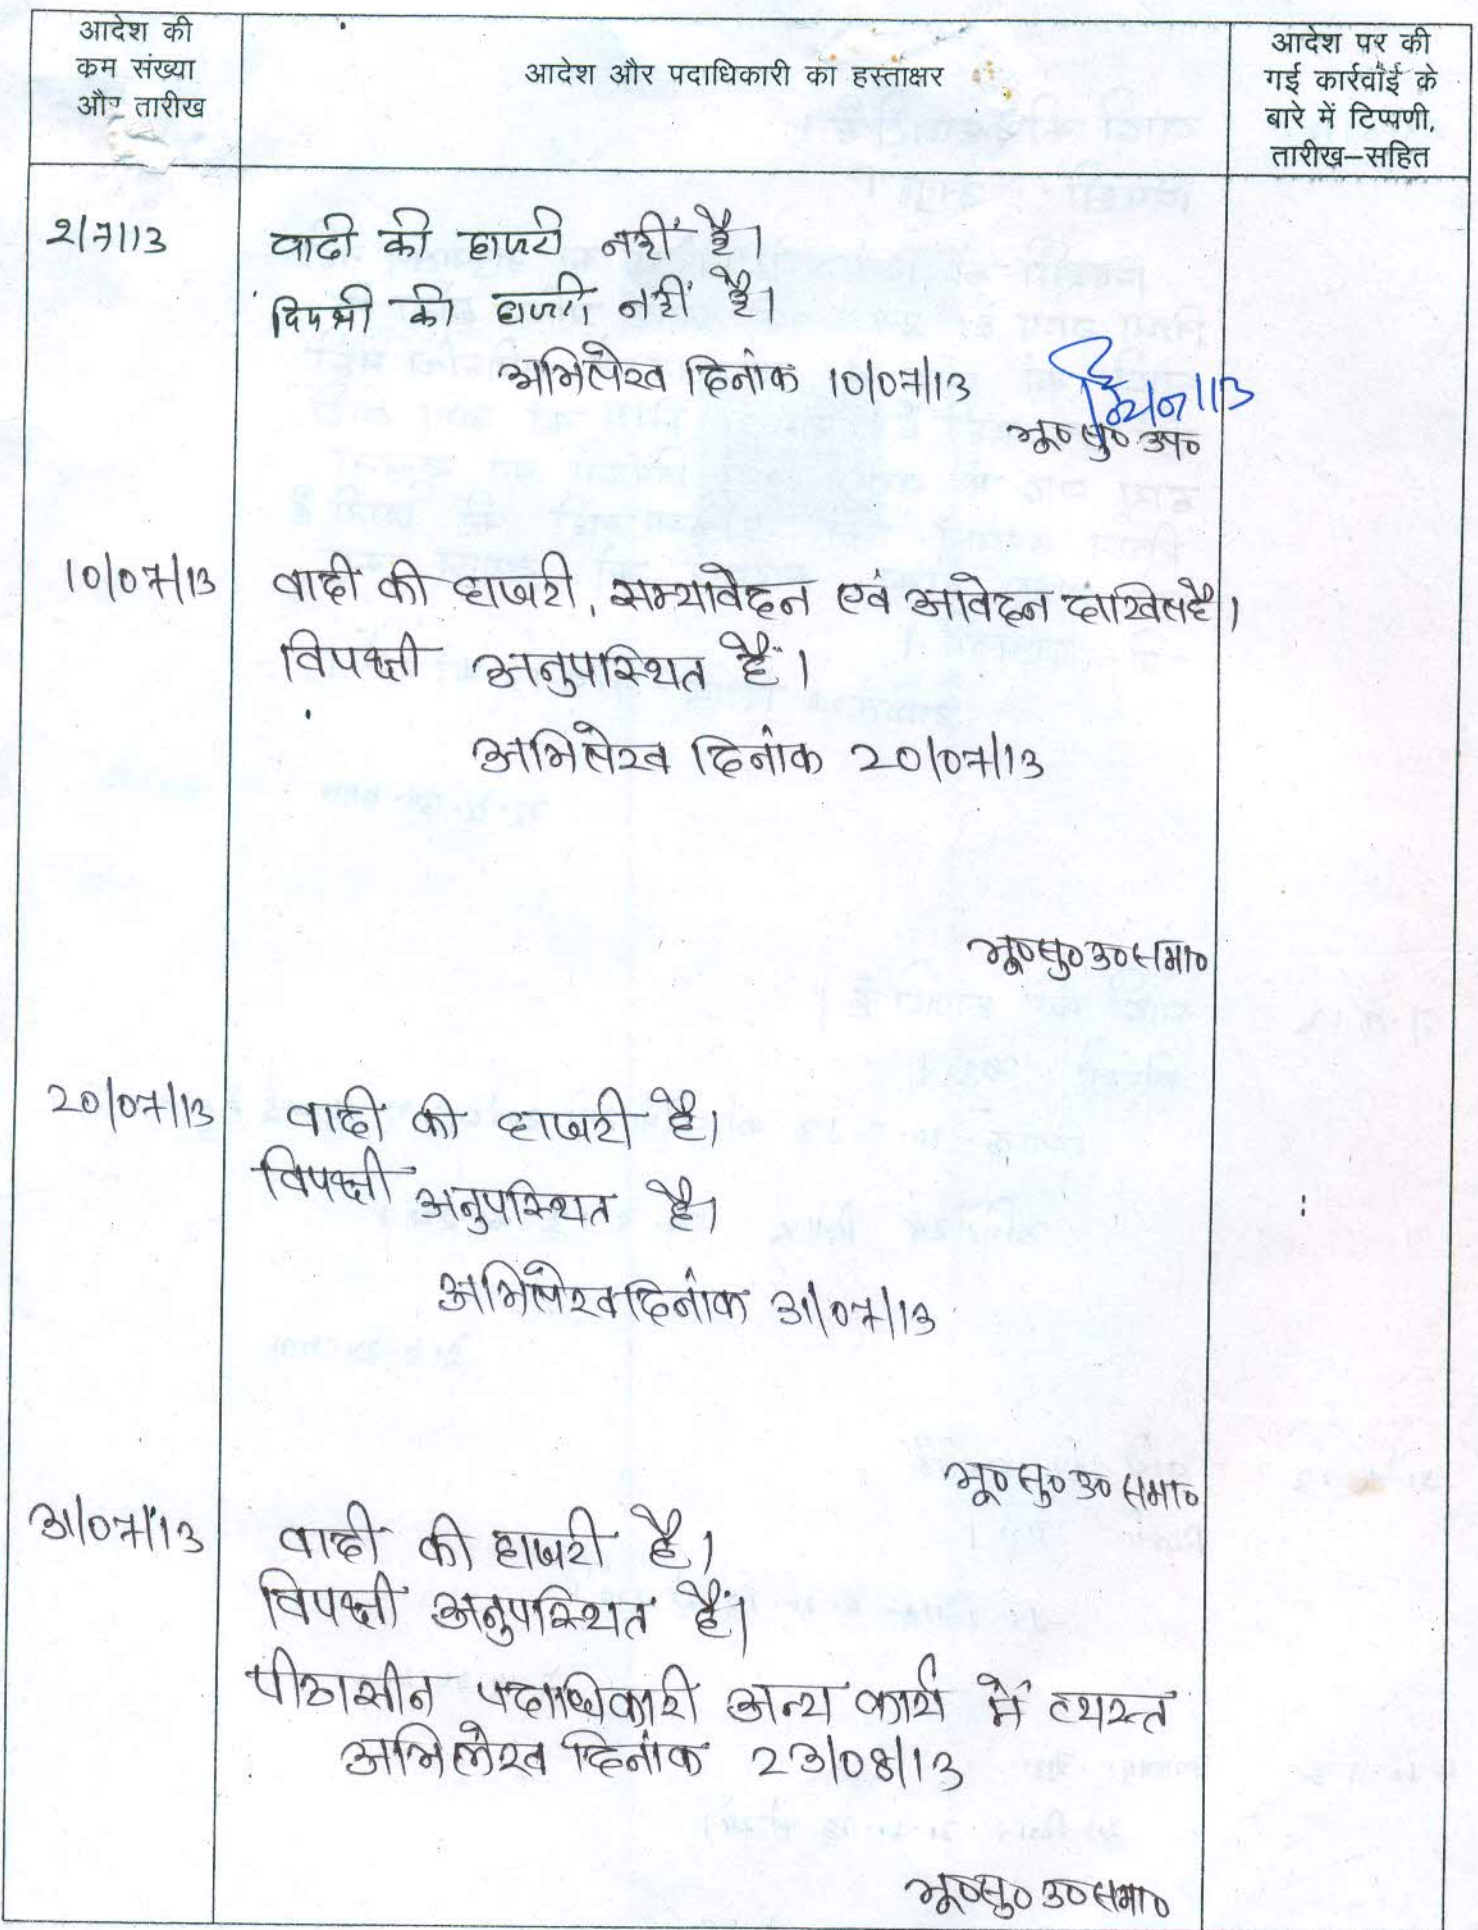 आदेश की
कम संख्या
और तारीख
आदेश और पदाधिकारी का हस्ताक्षर
आदेश पर की
गई कार्रवाई के
बारे में टिप्पणी,
तारीख–सहित
2/7/13
वादी की हाजरी नहीं है।
विपक्षी की हाजरी नहीं है।
अभिलेख दिनांक 10/07/13
भू० सु० उप०
10/07/13 वादी की हाजरी, सम्यावेदन एवं आवेदन दाखिल है।
विपक्षी अनुपस्थित हैं।
अभिलेख दिनांक 20/07/13
भू० सु० उ० समा०
20/07/13 वादी की हाजरी है।
विपक्षी अनुपस्थित है।
अभिलेख दिनांक 31/07/13
भू० सु० उ० समा०
31/07/13 वादी की हाजरी है।
विपक्षी अनुपस्थित हैं।
पीठासीन पदाधिकारी अन्य कार्य में व्यस्त
अभिलेख दिनांक 23/08/13
भू० सु० उ० समा०